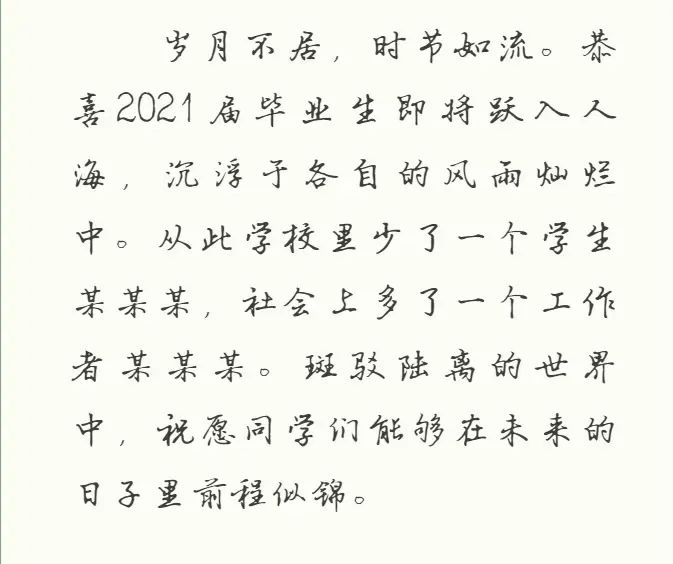 岁月不居，时节如流。恭
喜2021届毕业生即将跃入人
海，沉浮于各自的风雨灿烂
中。从此学校里少了一个学生
某某某，社会上多了一个工作
者某某某。斑驳陆离的世界
中，祝愿同学们能够在未来的
日子里前程似锦。